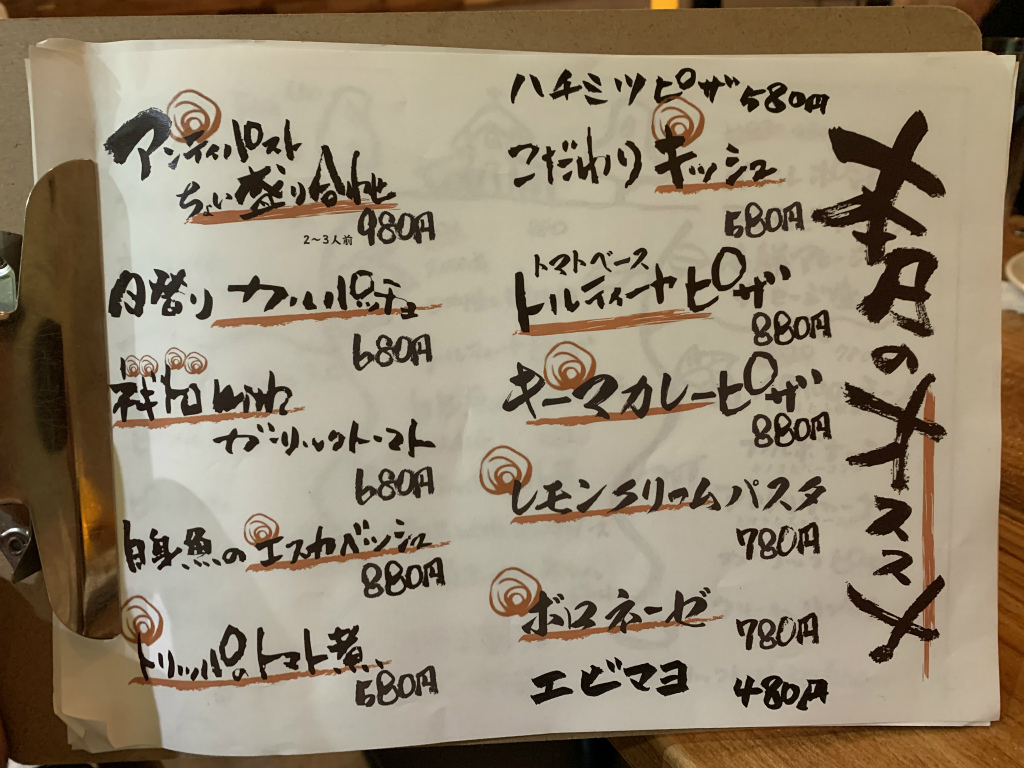 本日のオススメ
ハチミツピザ 580円
こだわりキッシュ
580円
トマトベース
トルティーヤピザ
880円
キーマカレーピザ
880円
レモンクリームパスタ
780円
ボロネーゼ
780円
エビマヨ 480円
アンティパスト
ちょい盛り合わせ
2〜3人前 980円
日替り カルパッチョ
680円
ネギトロ with
ガーリックトースト
680円
白身魚のエスカベッシュ
880円
トリッパのトマト煮
580円